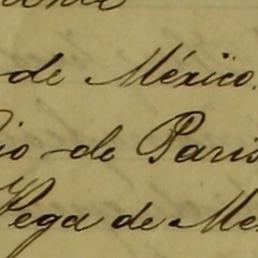 de México.
io de Paris
Vega de Me